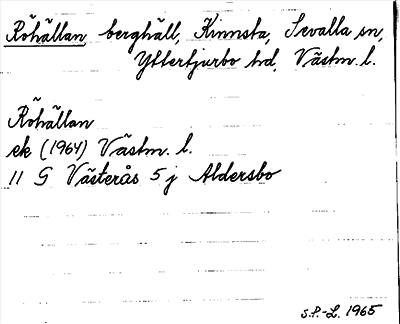 Röhällan, berghäll, Kinnsta, Sevalla sn,
Yttertjurbo hd, Västm. l.
Röhällan
ek (1964) Västm. l.
11 G Västerås 5 j Aldersbo
S.P.-L. 1965